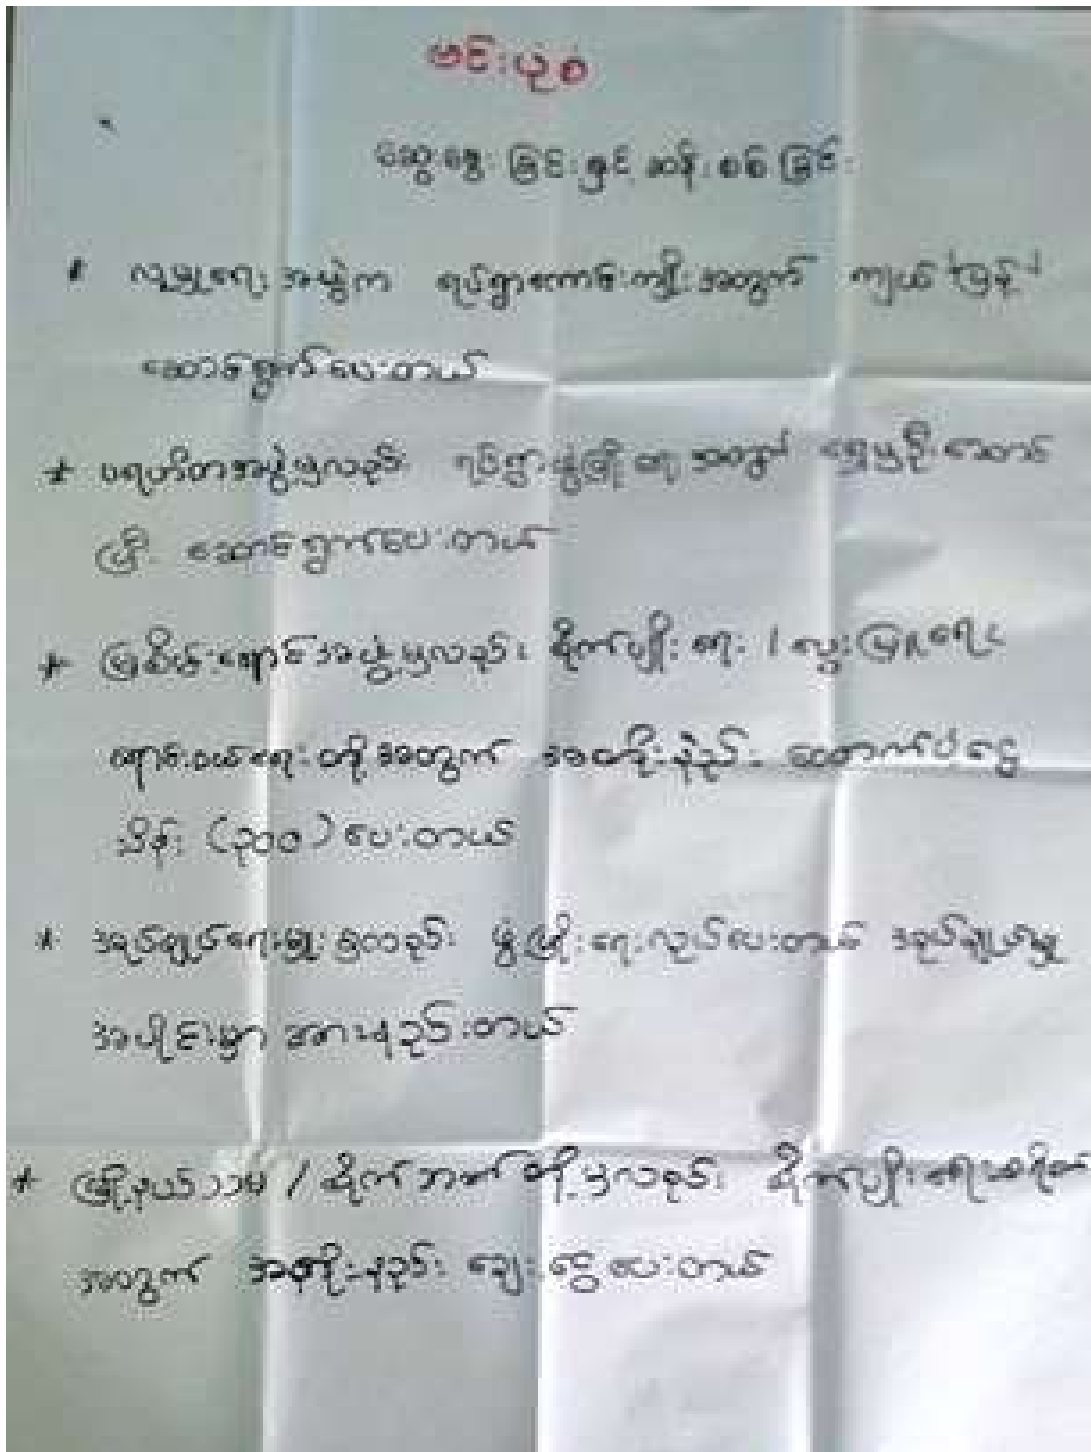 ဗင်းပုံစံ
ဆွေးနွေးခြင်းနှင့်ဆန်းစစ်ခြင်း
* လူမှုရေးအဖွဲ့က ရပ်ရွာကောင်းကျိုးအတွက် ကျယ်ပြန့်
ဆောင်ရွက်ပေးတယ်
* ပရဟိတအဖွဲ့မှလည်း ရပ်ရွာဖွံ့ဖြိုးရေးအတွက် ရှေ့မှဦးဆောင်
ပြီး ဆောင်ရွက်ပေးတယ်
* မြစိမ်းရောင်အဖွဲ့မှလည်း စိုက်ပျိုးရေး / မွေးမြူရေး
ရောင်းဝယ်ရေးတို့အတွက် အတိုးနဲ့နည်း ထောက်ပံ့ငွေ
သိန်း (၃၀၀) ပေးတယ်
* အုပ်ချုပ်ရေးမှူးမှလည်း ဖွံ့ဖြိုးရေးလုပ်ပေးတယ် အုပ်ချုပ်မှု
အပိုင်းမှာ အားနည်းတယ်
* မြို့နယ်သမ / စိုက်ဘဏ်တို့မှလည်း စိုက်ပျိုးရေးစရိတ်
အတွက် အတိုးနှုန်း ချေးငွေပေးတယ်